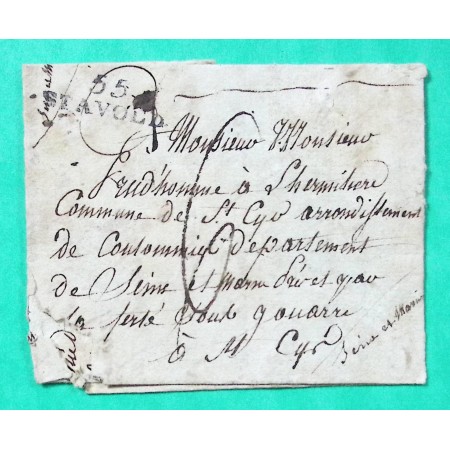 55
Monsieur Monsieur
Prud'homme à L'hermitiere
Commune de St Cyr arrondissement
de Coulommier département
de Seine et marne Près et par
la ferté sous Jouarre
à St Cyr
Seine et Marne